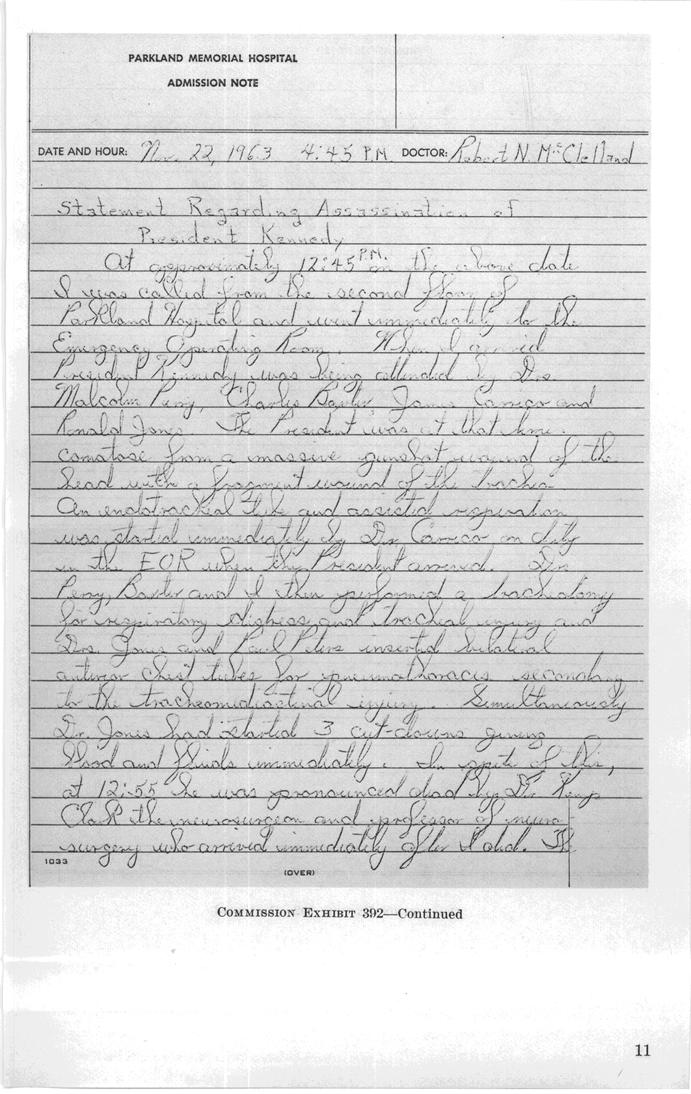 PARKLAND MEMORIAL HOSPITAL
ADMISSION NOTE
DATE AND HOUR: Nov. 22, 1963 4:45 P.M. DOCTOR: Robert N. McClelland
Statement Regarding Assassination of
President Kennedy
At approximately 12:45 P.M. on the above date
I was called from the second floor of
Parkland Hospital and went immediately to the
Emergency Operating Room. When I arrived
President Kennedy was being attended by Drs.
Malcolm Perry, Charles Baxter, James Carrico and
Ronald Jones. The President was at that time
comatose from a massive gunshot wound of the
head with a fragment wound of the trachea.
An endotracheal tube and assisted respiration
was started immediately by Dr. Carrico on duty
in the EOR when the President arrived. Drs.
Perry, Baxter and I then performed a tracheotomy
for respiratory distress and tracheal injury and
Drs. Jones and Paul Peters inserted bilateral
anterior chest tubes for pneumothoracis secondary
to the tracheomediastinal injury. Simultaneously
Dr. Jones had started 3 cut-downs giving
blood and fluids immediately. In spite of this,
at 12:55 he was pronounced dead by Dr. Kemp
Clark the neurosurgeon and professor of neuro-
surgery who arrived immediately after I did. The
1033
(OVER)
COMMISSION EXHIBIT 392—Continued
11